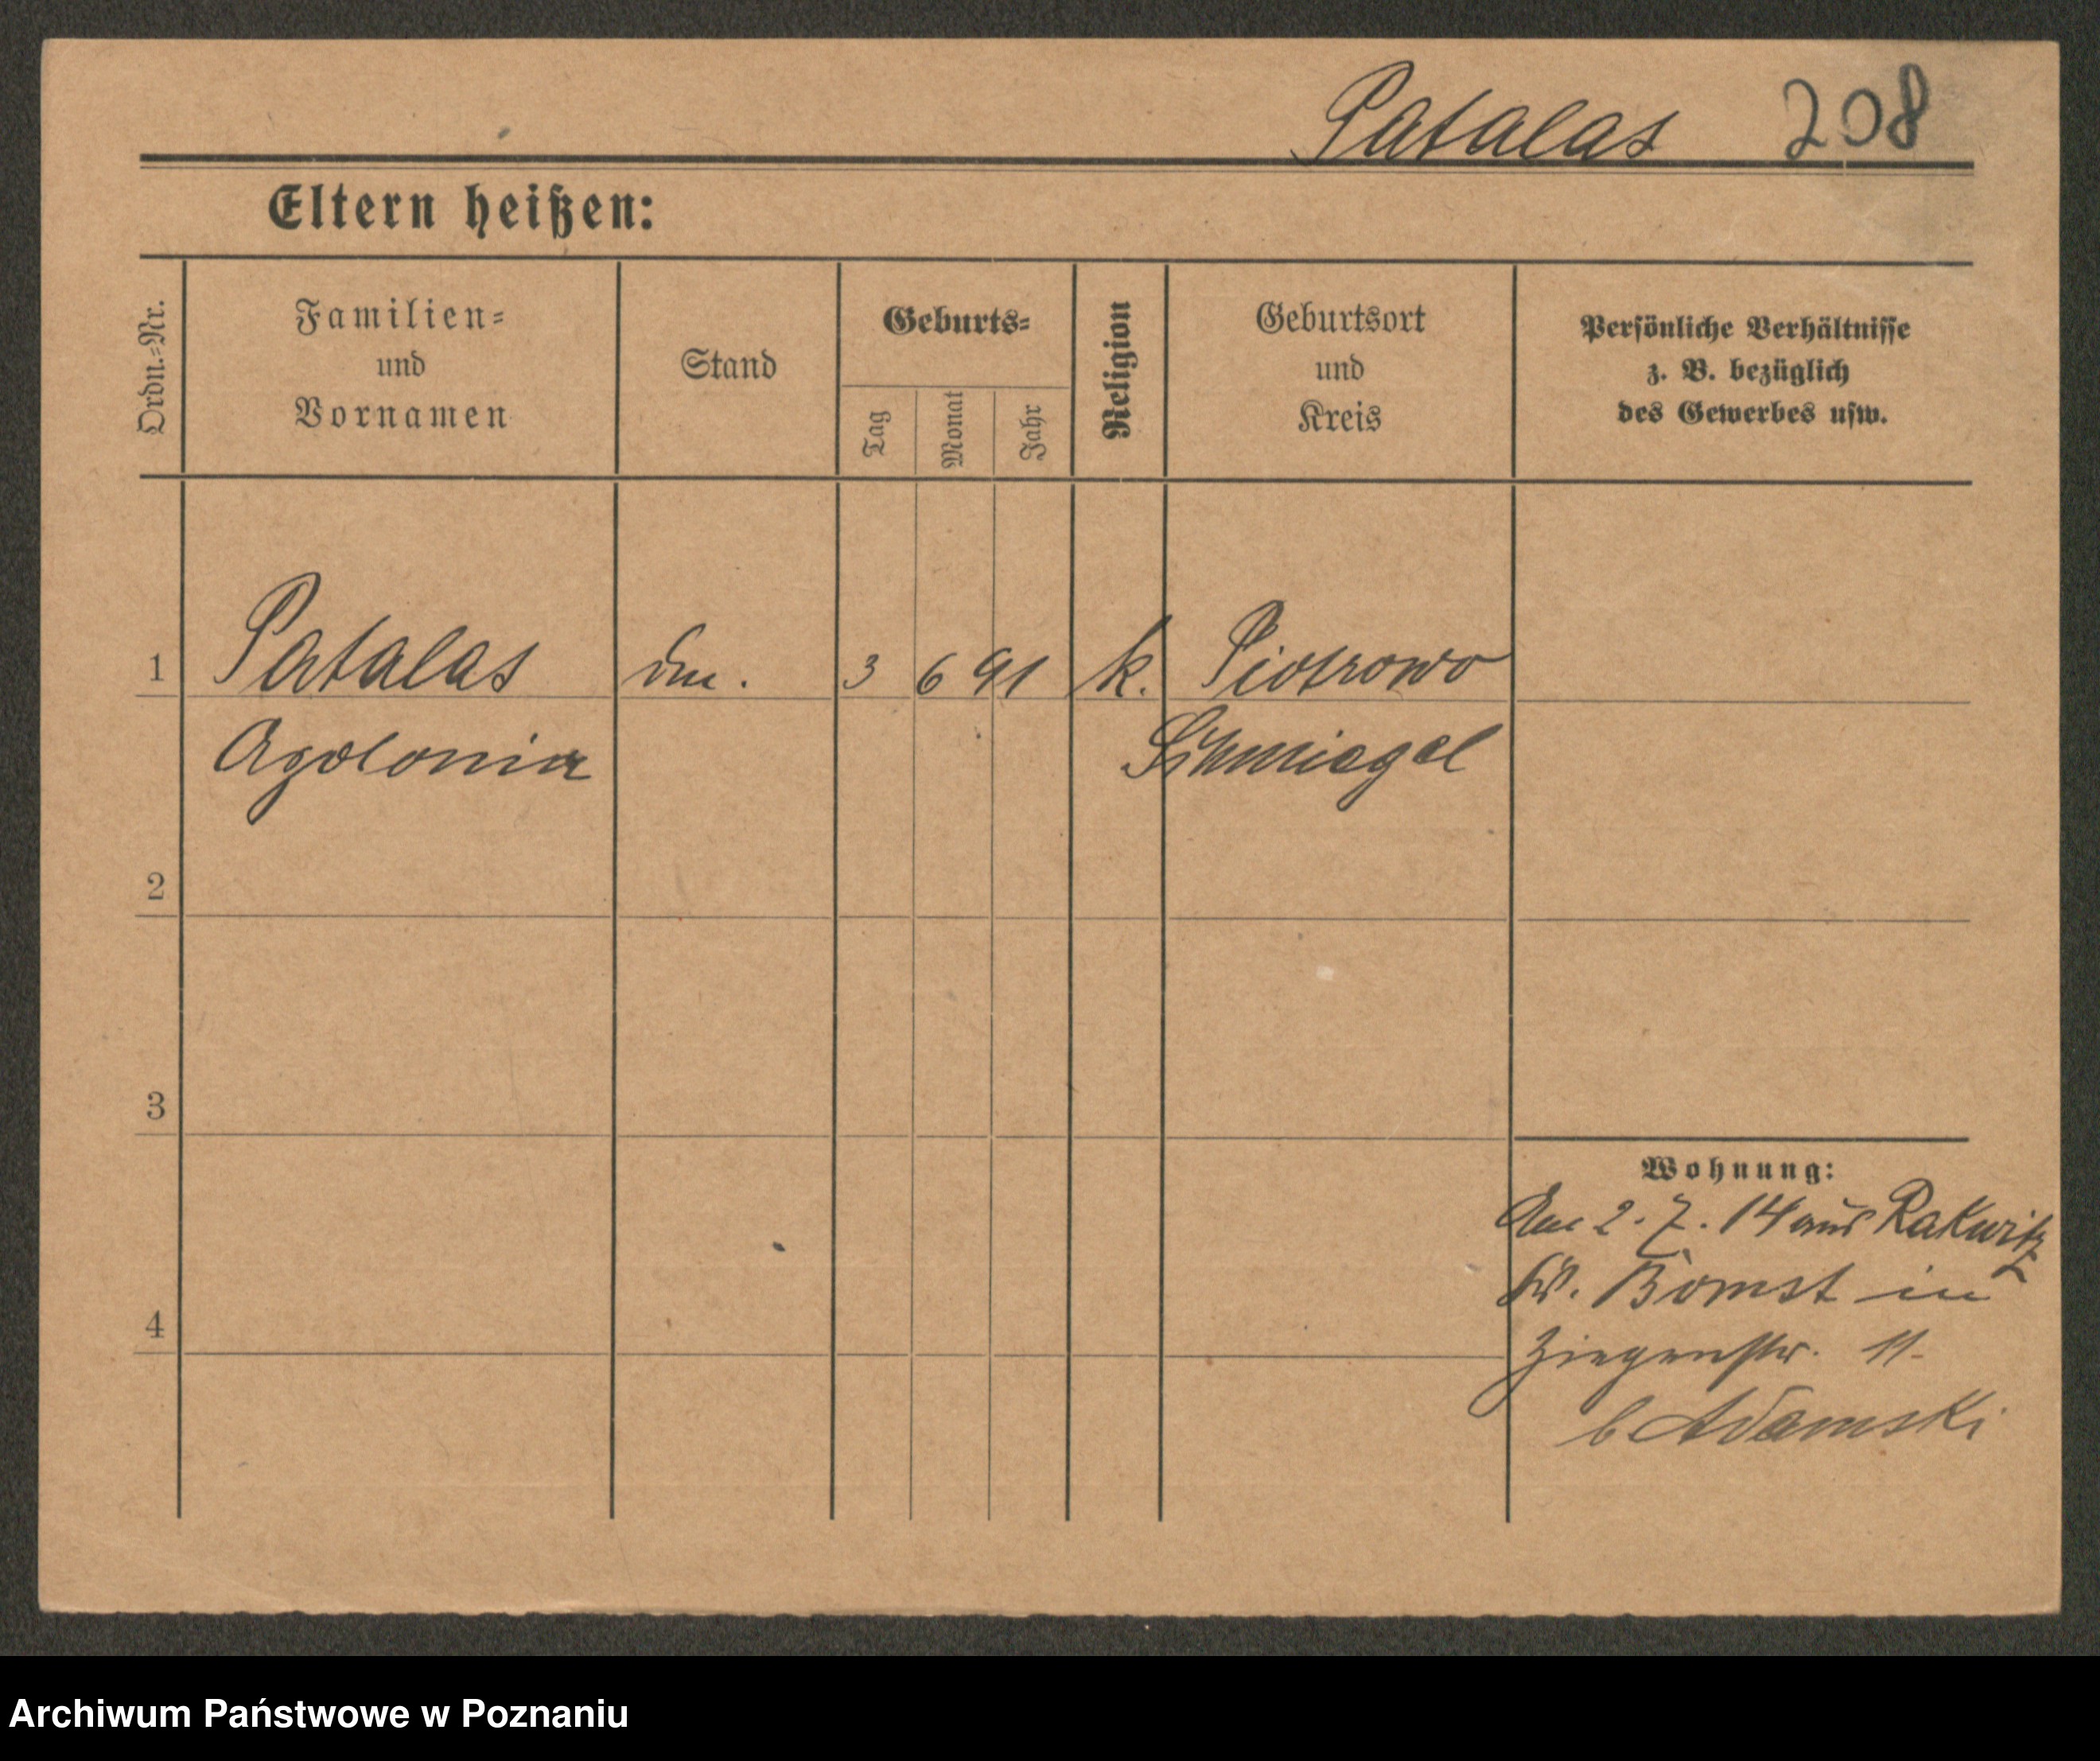 Patalas 208
Eltern heißen:
Ordn.-Nr.
Familien-
und
Vornamen
Stand
Geburts-
Tag
Monat
Jahr
Religion
Geburtsort
und
Kreis
Persönliche Verhältnisse
z. B. bezüglich
des Gewerbes usw.
1 Patalas 3 6 91 k. Piotrowo
Apolonia Schmiegel
2
3
4
Wohnung:
Am 2. 7. 14 aus Rakwitz
Kr. Bomst in
Ziegenstr. 11.
b Adamski
Archiwum Państwowe w Poznaniu